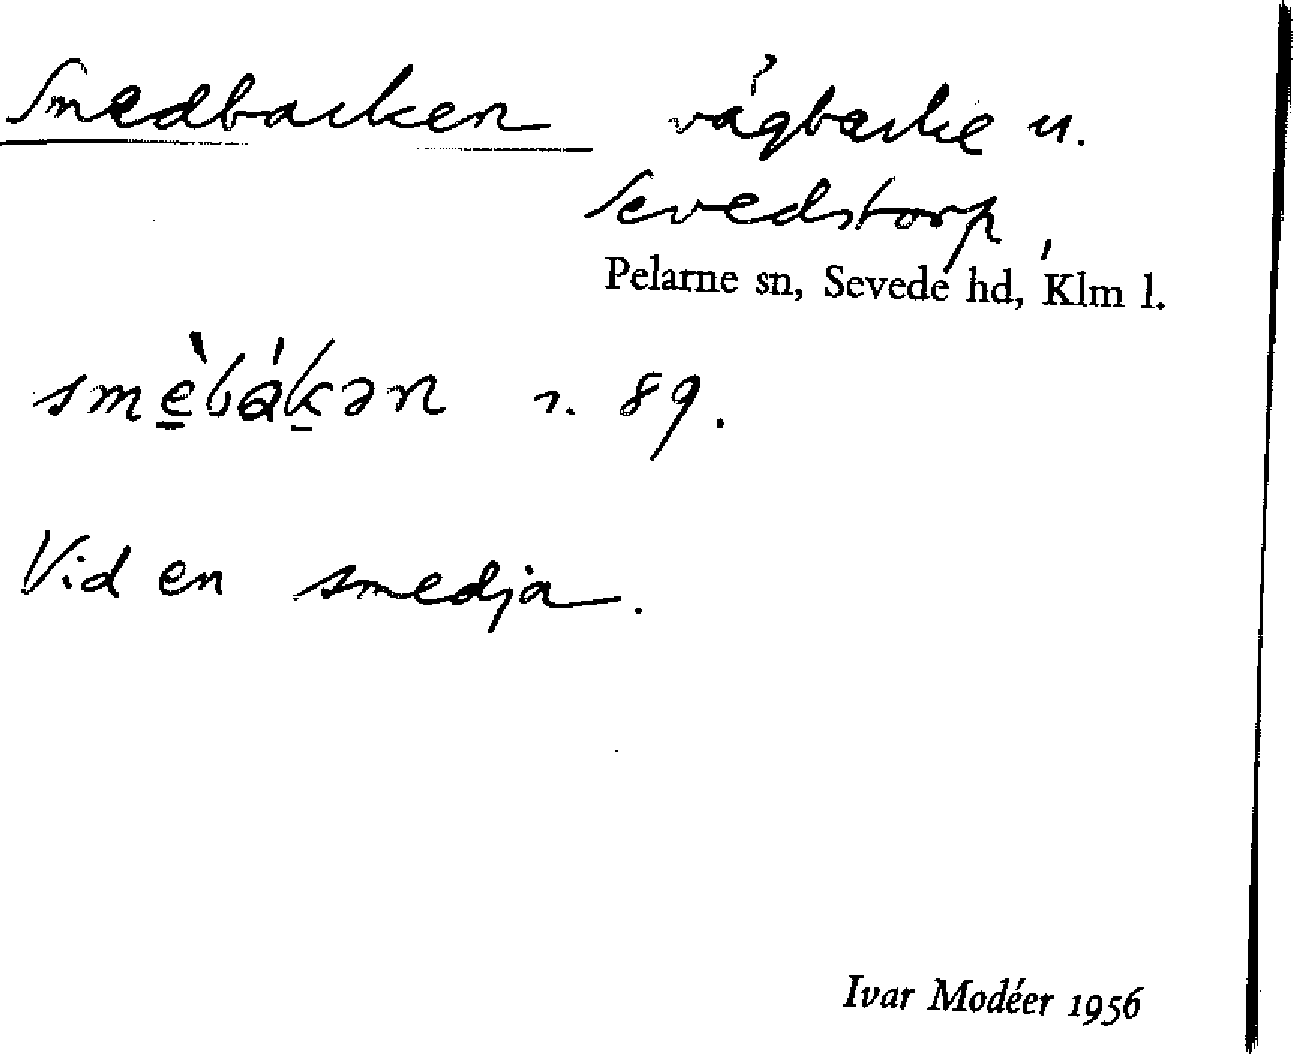 Smedbacken vägbacke u.
Sevedstorp,
Pelarne sn, Sevede hd, Klm l.
smè̱bákən 89.
Vid en smedja.
Ivar Modéer 1956